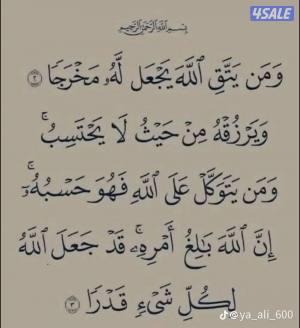 4SALE
بِسْمِ اللَّهِ الرَّحْمَٰنِ الرَّحِيمِ
وَمَن يَتَّقِ اللَّهَ يَجْعَل لَّهُۥ مَخْرَجًا ٢
وَيَرْزُقْهُ مِنْ حَيْثُ لَا يَحْتَسِبُ ۚ
وَمَن يَتَوَكَّلْ عَلَى اللَّهِ فَهُوَ حَسْبُهُۥٓ ۚ
إِنَّ اللَّهَ بَٰلِغُ أَمْرِهِۦ ۚ قَدْ جَعَلَ اللَّهُ
لِكُلِّ شَيْءٍ قَدْرًا ٣
@ya_ali_600